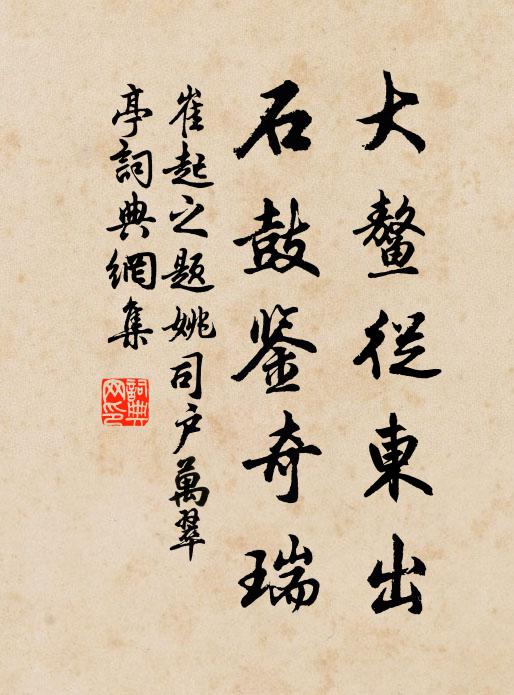 大鼇從東出
石鼓鉴奇瑞
崔起之題姚司户萬翠
亭詞典網集
詞典
网印